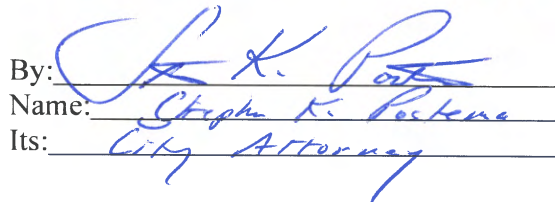 By: K.
Name: Stephen K. Postema
Its: City Attorney